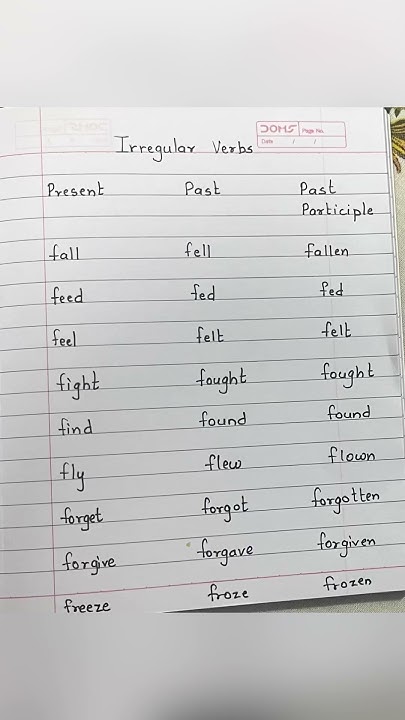 DOMS Page No.
Date / /
Irregular Verbs
Present Past Past Participle
fall fell fallen
feed fed fed
feel felt felt
fight fought fought
find found found
fly flew flown
forget forgot forgotten
forgive forgave forgiven
freeze froze frozen